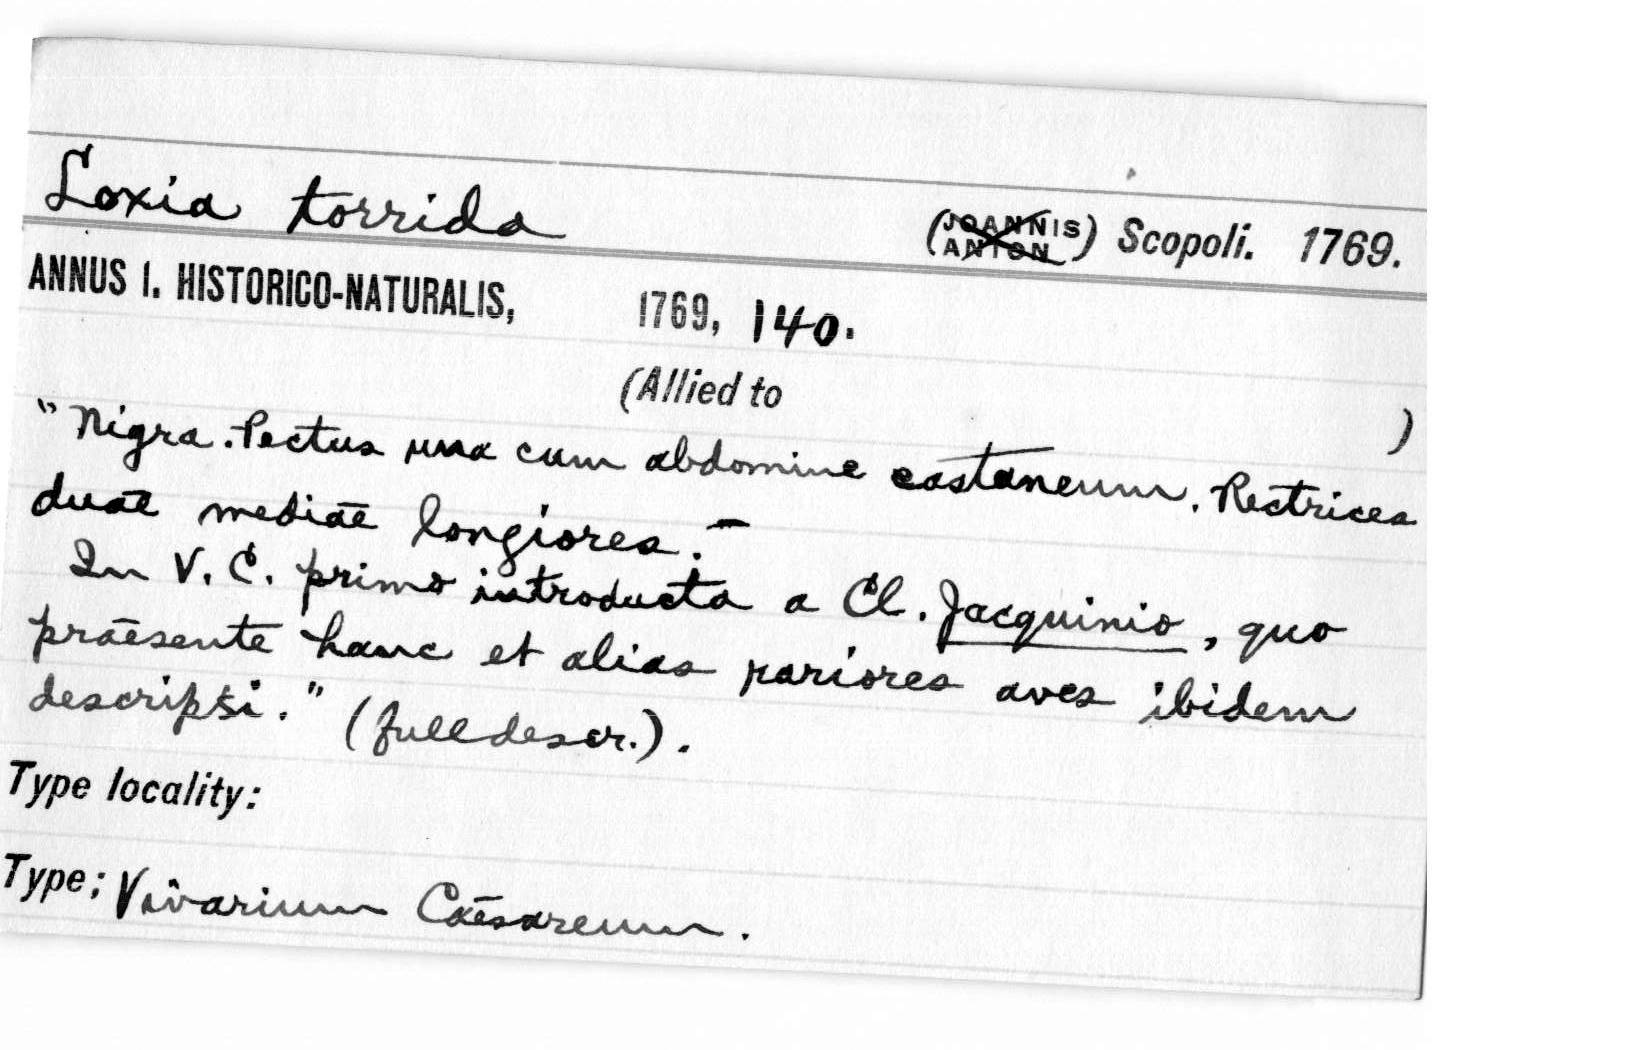 Loxia torrida (JOANNIS ANTON) Scopoli. 1769.
ANNUS I. HISTORICO-NATURALIS, 1769, 140.
(Allied to )
"Nigra. Pectus una cum abdomine castaneum. Rectrices
duae mediae longiores.—
In V. C. primo introducta a Cl. Jacquinio, quo
praesente hanc et alias rariores aves ibidem
descripsi." (full descr.).
Type locality:
Type: Vivarium Caesareum.